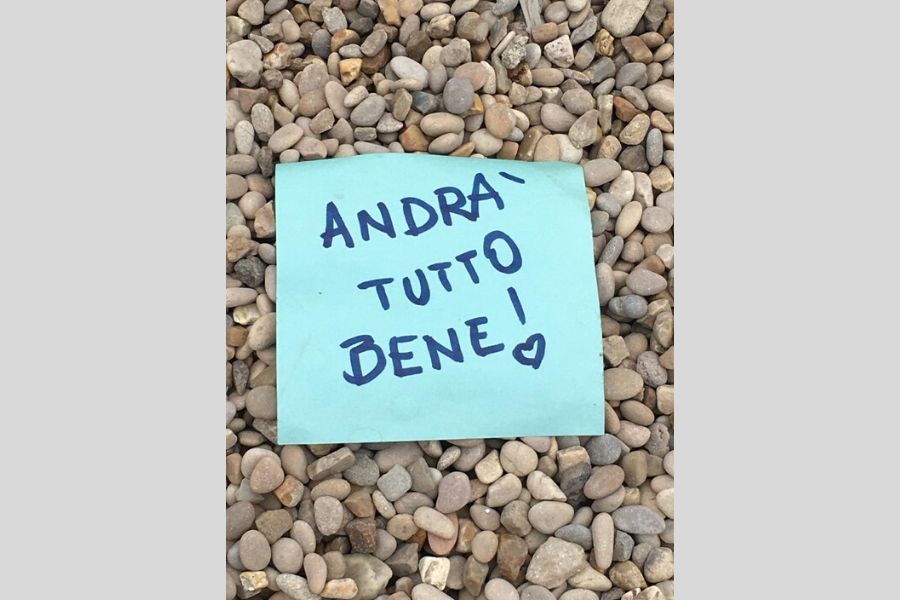 ANDRA`
TUTTO
BENE! ♡